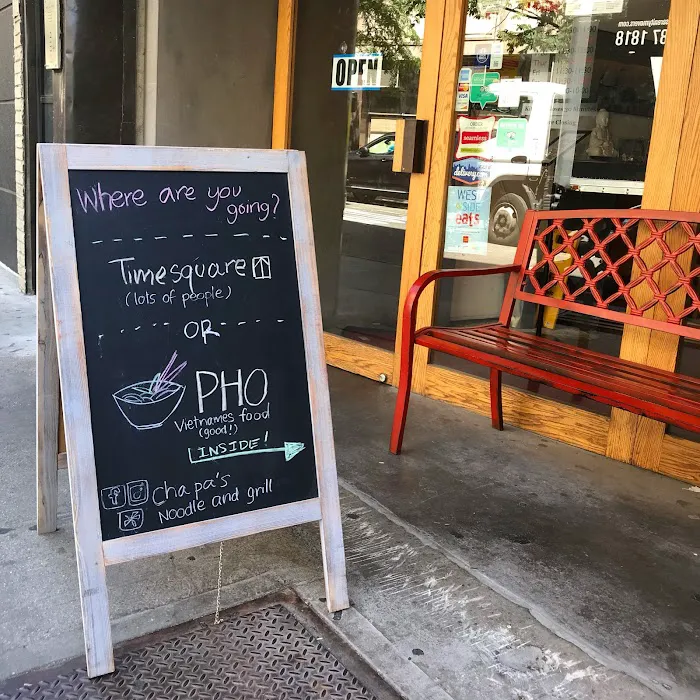 Where are you
going?
Timesquare
(lots of people)
OR
PHO
Vietnames food
(good!)
INSIDE!
Cha pa's
Noodle and grill
OPEN
VISA
seamless
delivery.com
WEST
SIDE
eats
87 1818